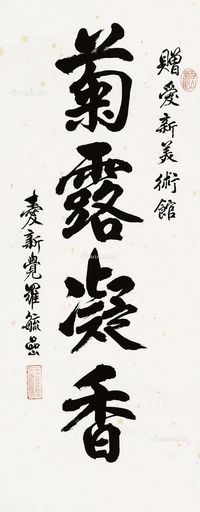 贈愛新美術館
菊露凝香
愛新覺羅毓嵒